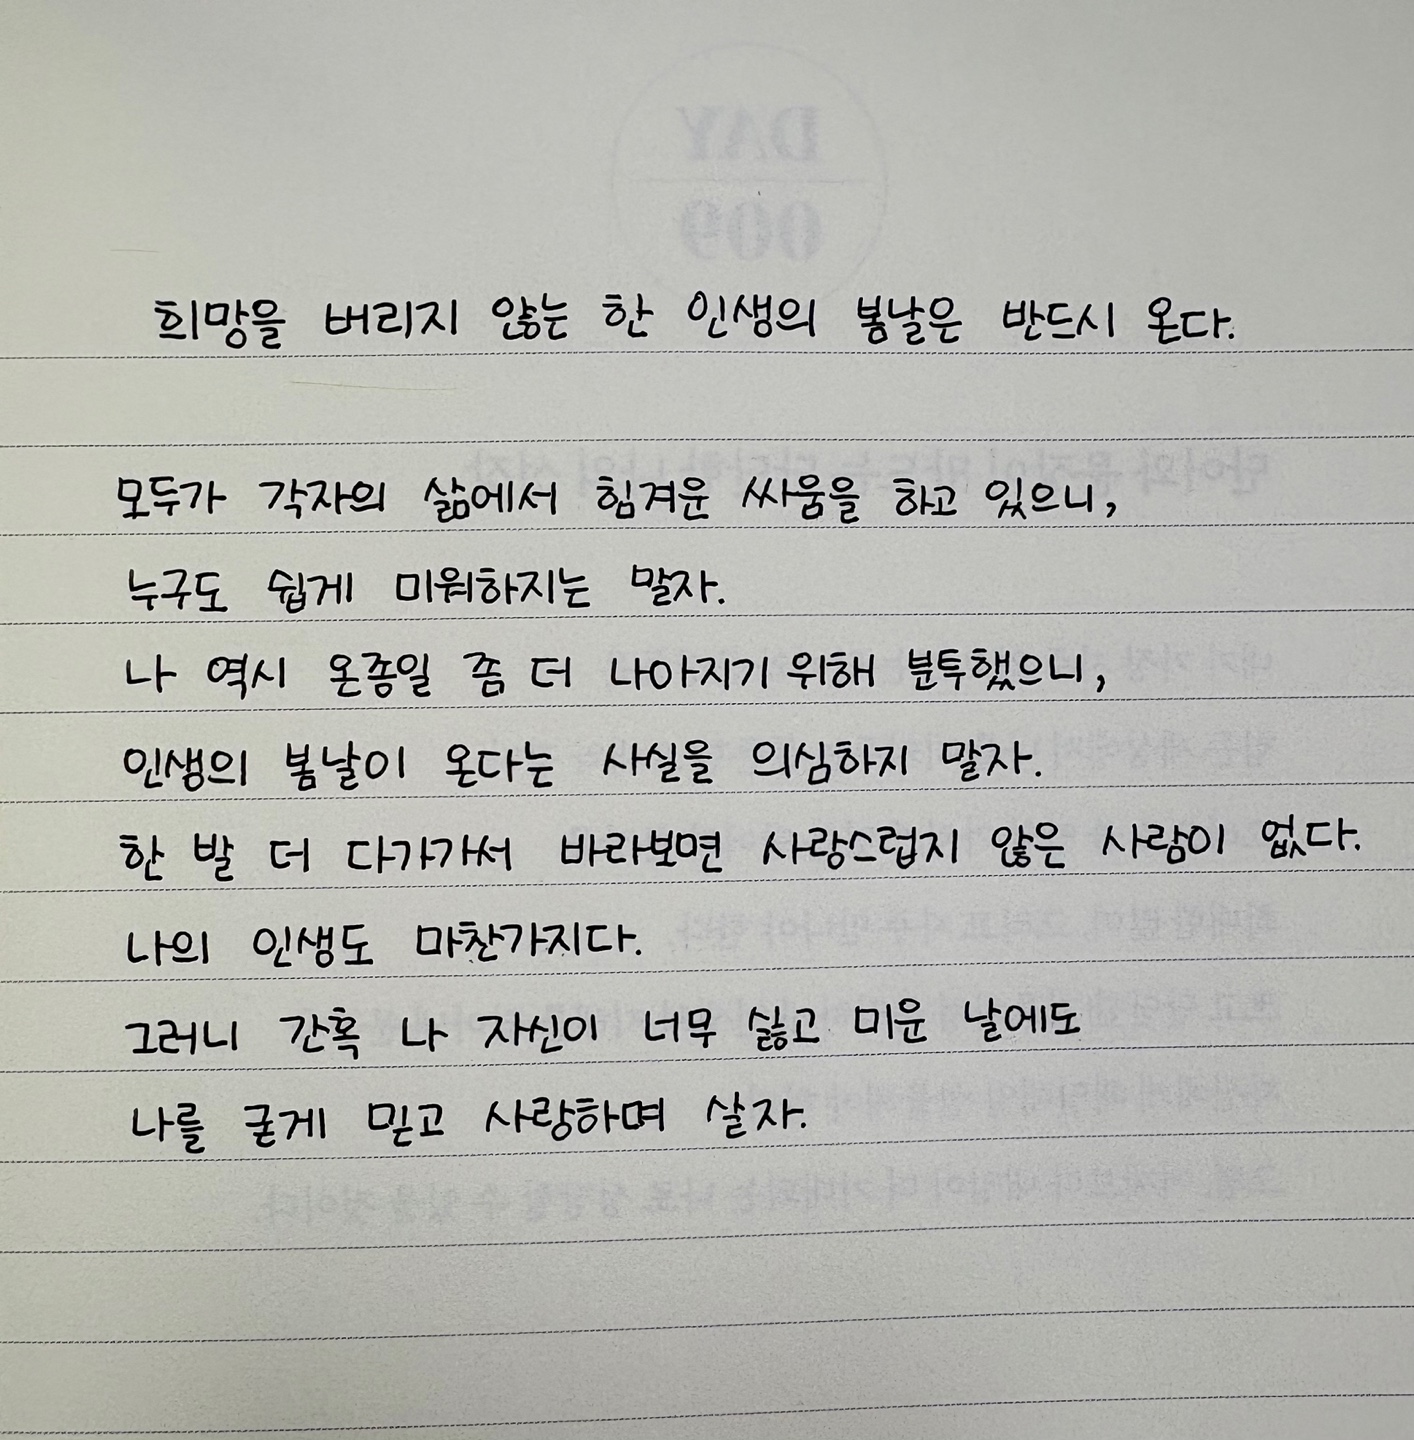 희망을 버리지 않는 한 인생의 봄날은 반드시 온다.
모두가 각자의 삶에서 힘겨운 싸움을 하고 있으니,
누구도 쉽게 미워하지는 말자.
나 역시 온종일 좀 더 나아지기 위해 분투했으니,
인생의 봄날이 온다는 사실을 의심하지 말자.
한 발 더 다가가서 바라보면 사랑스럽지 않은 사람이 없다.
나의 인생도 마찬가지다.
그러니 간혹 나 자신이 너무 싫고 미운 날에도
나를 굳게 믿고 사랑하며 살자.